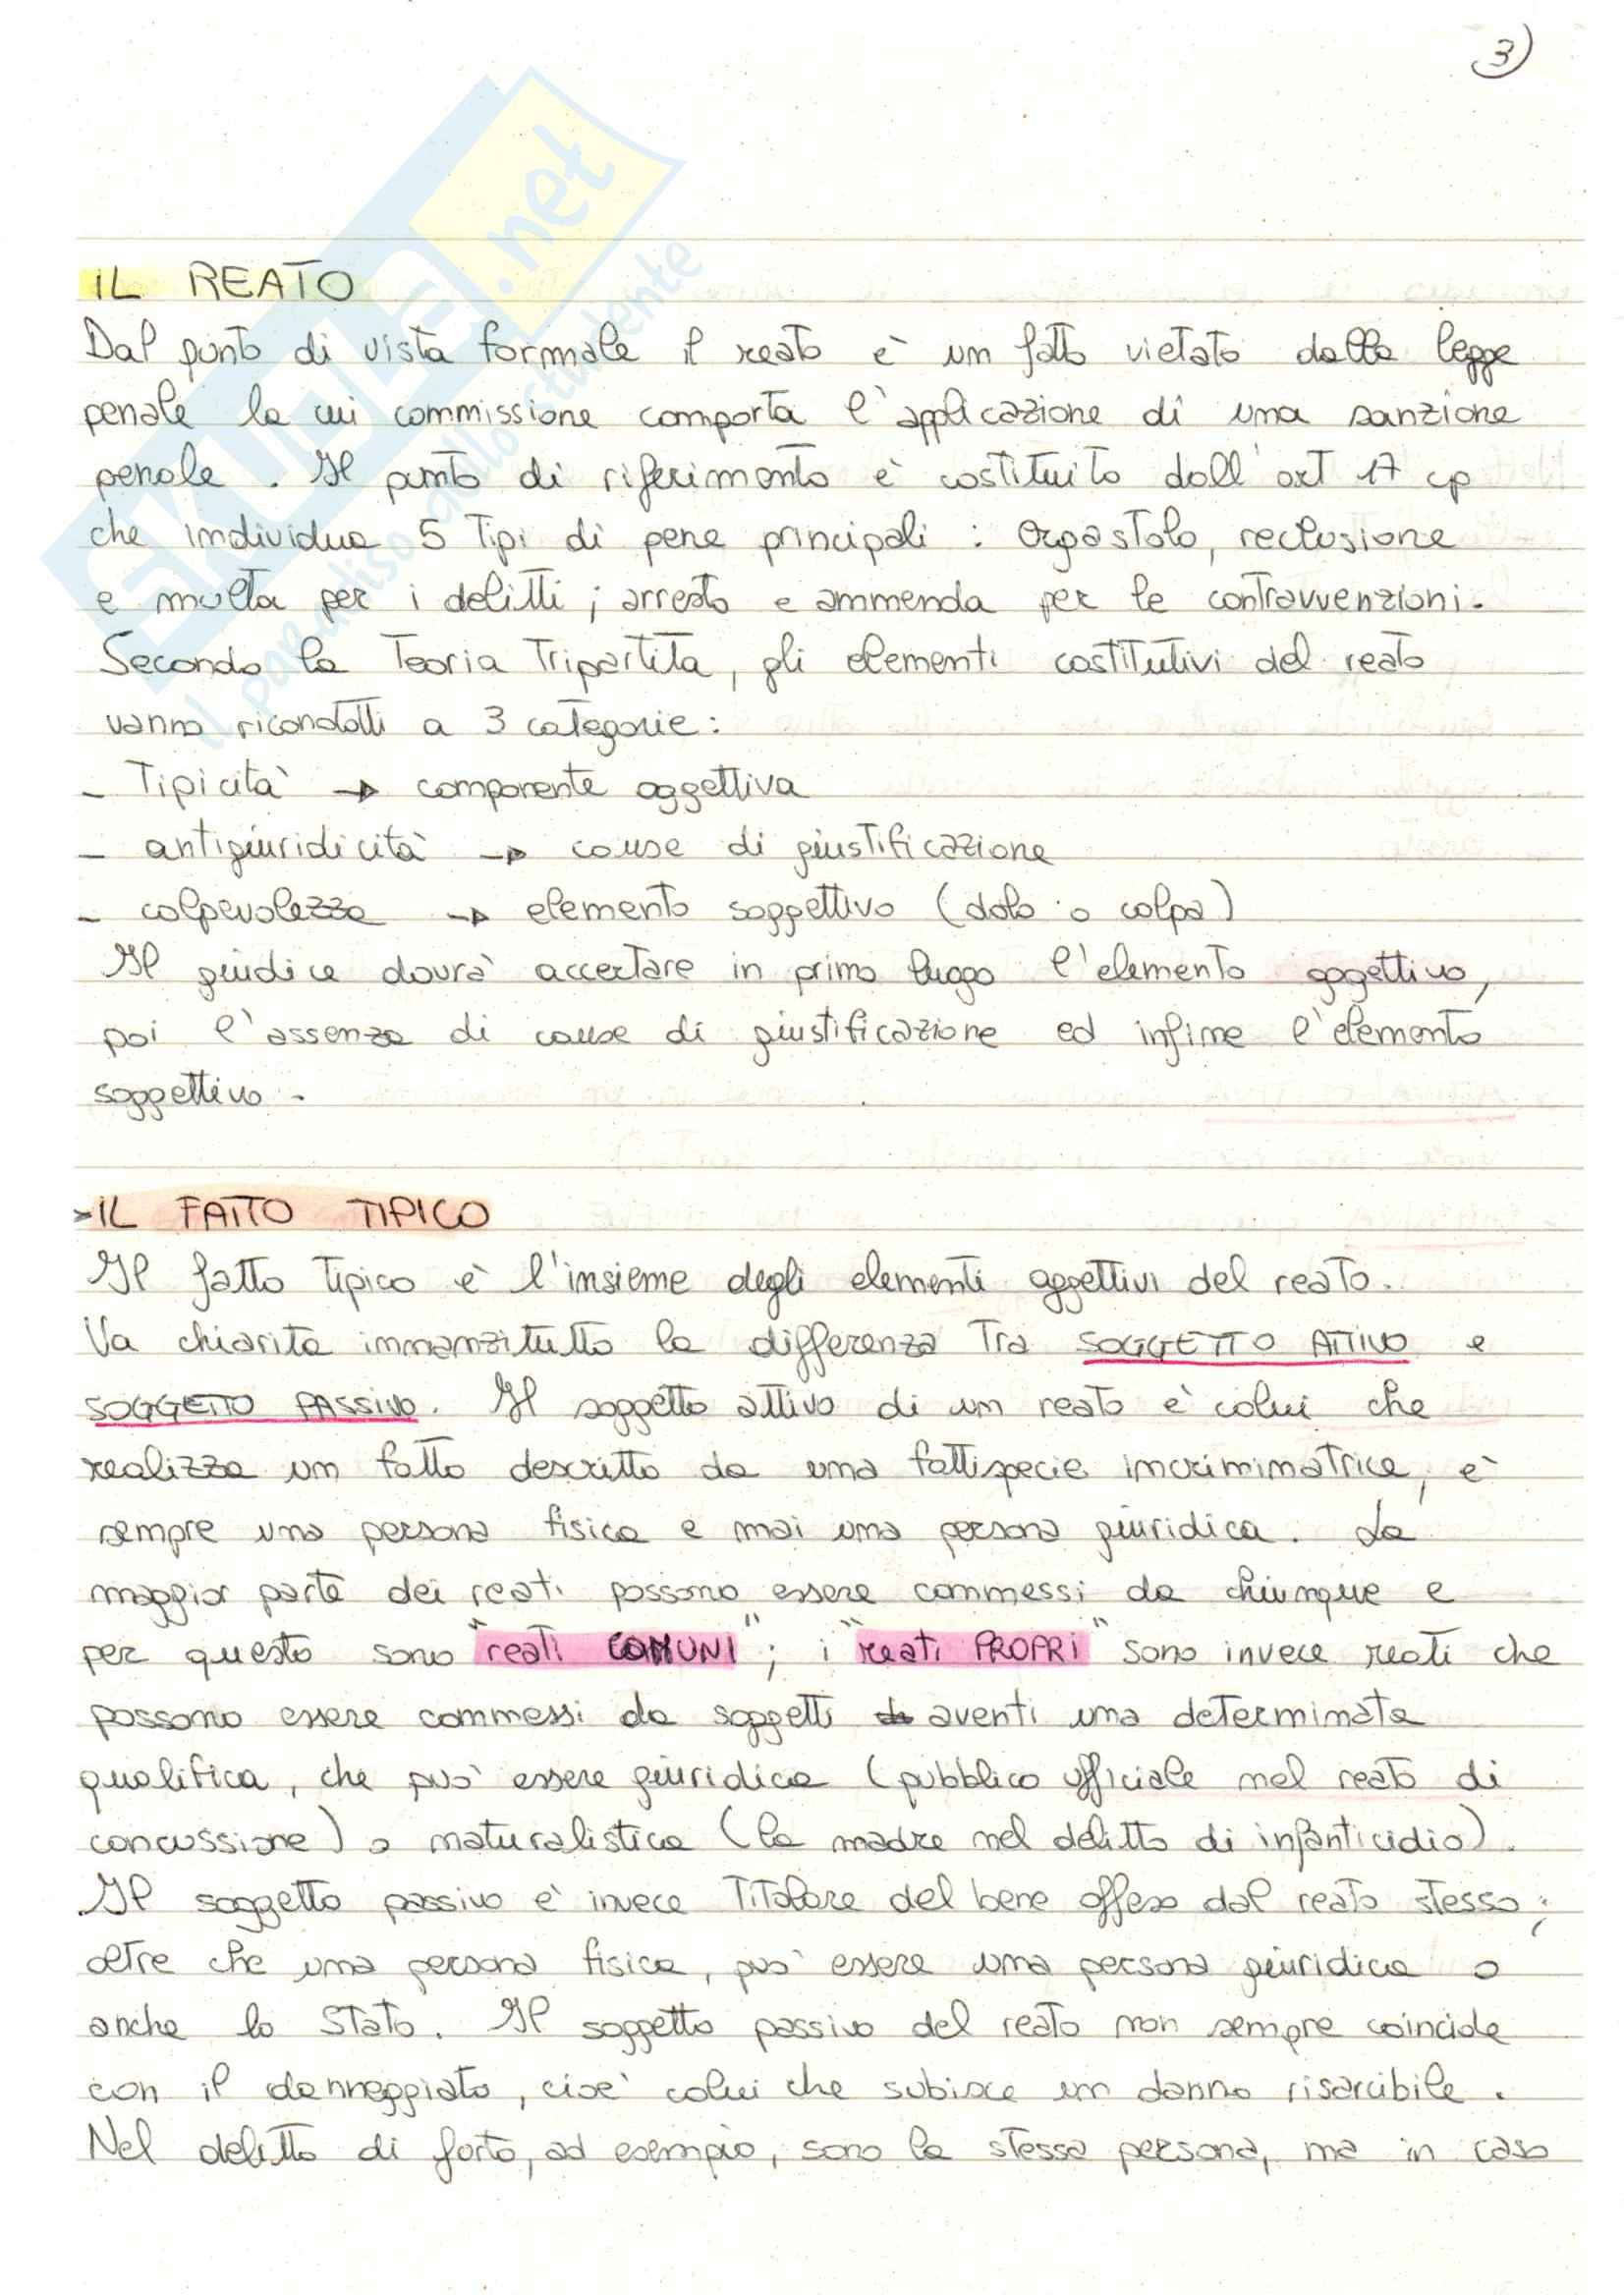 3)
IL REATO
Dal punto di vista formale il reato è un fatto vietato dalla legge
penale la cui commissione comporta l'applicazione di una sanzione
penale. Il punto di riferimento è costituito dall'art 17 cp
che individua 5 tipi di pene principali: ergastolo, reclusione
e multa per i delitti; arresto e ammenda per le contravvenzioni.
Secondo la Teoria Tripartita, gli elementi costitutivi del reato
vanno ricondotti a 3 categorie:
- Tipicità → componente oggettiva
- antigiuridicità → cause di giustificazione
- colpevolezza → elemento soggettivo (dolo o colpa)
Il giudice dovrà accertare in primo luogo l'elemento oggettivo,
poi l'assenza di cause di giustificazione ed infine l'elemento
soggettivo.
>IL FATTO TIPICO
Il fatto tipico è l'insieme degli elementi oggettivi del reato.
Va chiarita innanzitutto la differenza tra SOGGETTO ATTIVO e
SOGGETTO PASSIVO. Il soggetto attivo di un reato è colui che
realizza un fatto descritto da una fattispecie incriminatrice, è
sempre una persona fisica e mai una persona giuridica. La
maggior parte dei reati possono essere commessi da chiunque e
per questo sono "reati COMUNI"; i "reati PROPRI" sono invece reati che
possono essere commessi da soggetti aventi una determinata
qualifica, che può essere giuridica (pubblico ufficiale nel reato di
concussione) o naturalistica (la madre nel delitto di infanticidio).
Il soggetto passivo è invece titolare del bene offeso dal reato stesso;
oltre che una persona fisica, può essere una persona giuridica o
anche lo Stato. Il soggetto passivo del reato non sempre coincide
con il danneggiato, cioè colui che subisce un danno risarcibile.
Nel delitto di furto, ad esempio, sono la stessa persona, ma in caso
SKUOLA.net
il paradiso dello studente